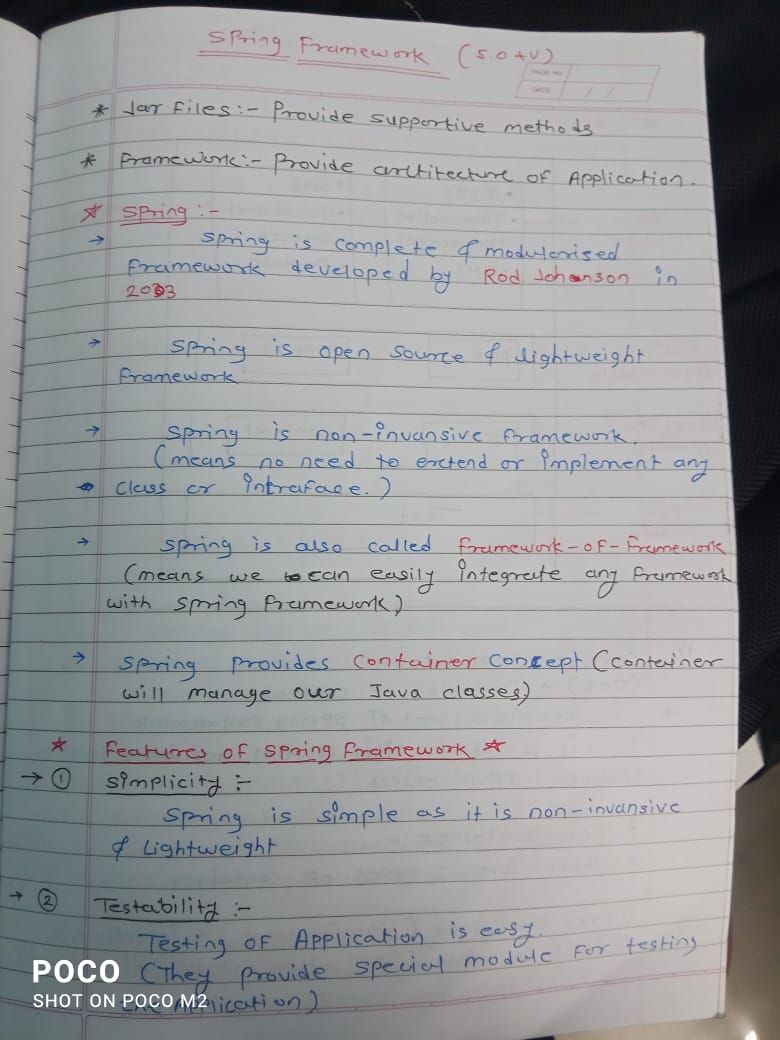 Spring Framework (5.0 +V)
PAGE NO.
DATE / /
* Jar Files:- Provide supportive methods
* Framework:- Provide arctitecture of Application.
* Spring :-
→ Spring is complete & modularised
Framework developed by Rod Johanson in
2003
→ Spring is open source & lightweight
Framework
→ Spring is non-invansive framework.
(means no need to extend or implement any
class or intraface.)
→ Spring is also called framework-of-framework
(means we can easily integrate any framework
with spring framework)
→ Spring provides container concept (container
will manage our Java classes)
* Features of Spring Framework *
→ ① Simplicity :-
Spring is simple as it is non-invansive
& Lightweight
→ ② Testability :-
Testing of Application is easy.
(They provide special module for testing
POCO
SHOT ON POCO M2